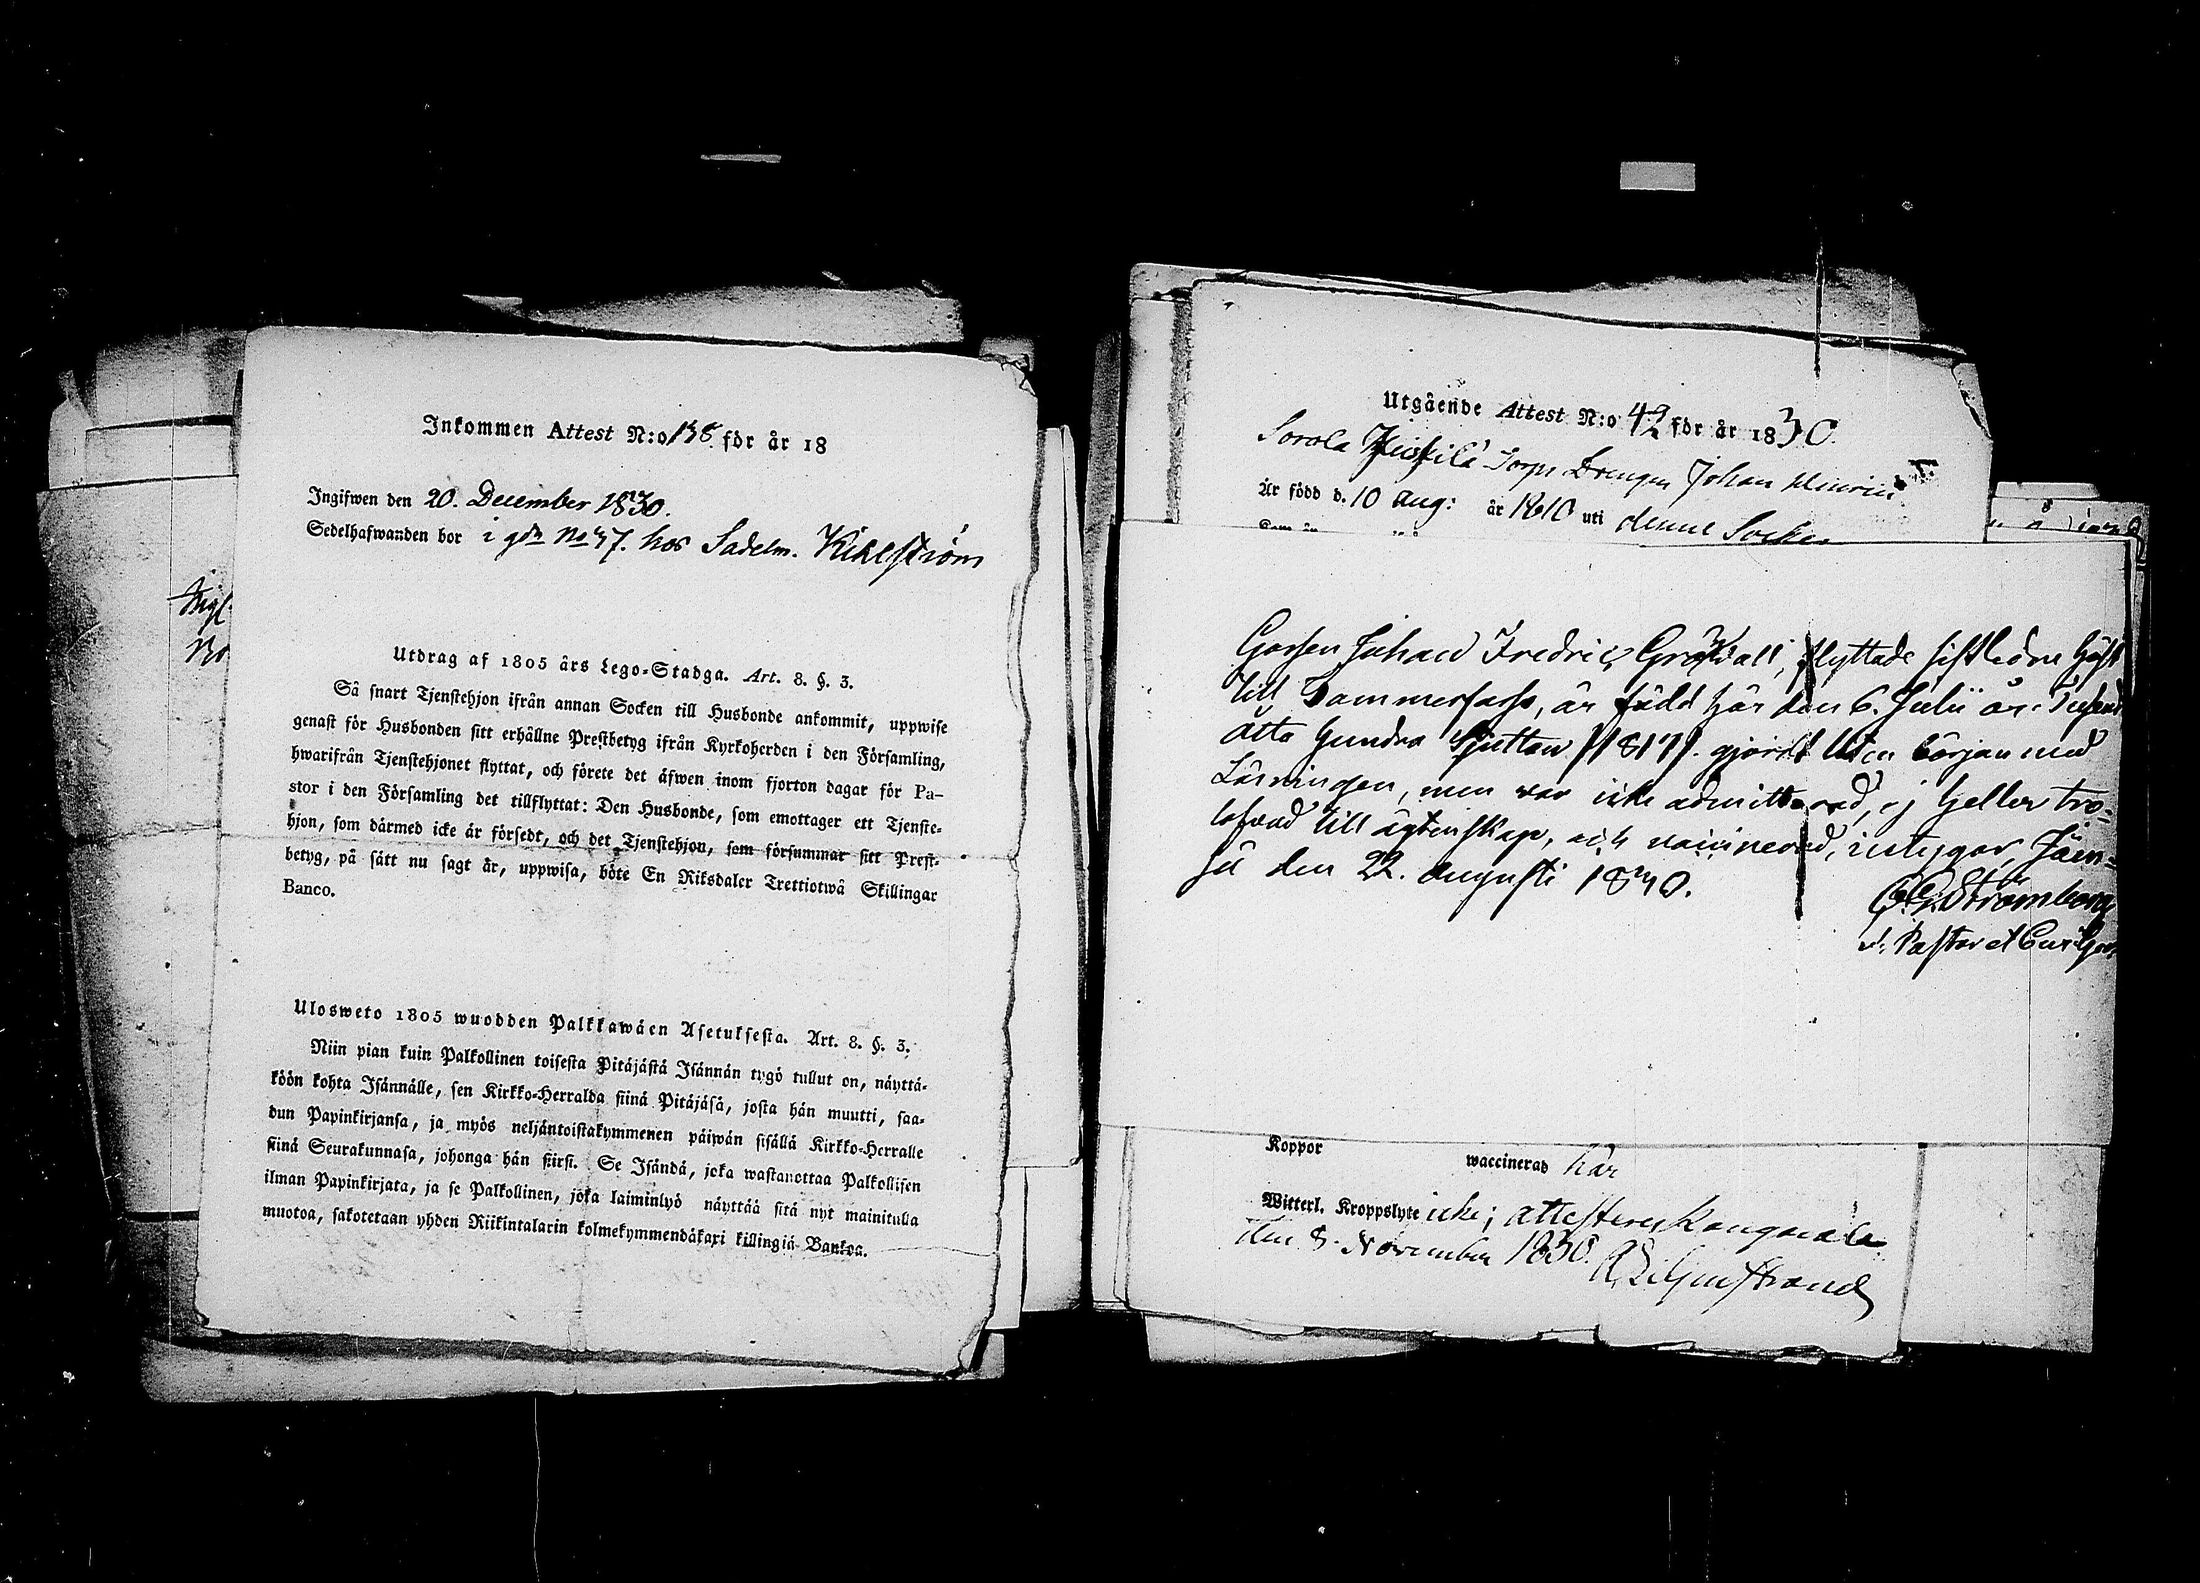 Inkommen Attest N:o 138. för år 18
Ingifwen den 20. December 1830.
Sedelhafwanden bor i gdn No 47. hos Sadelm. Kihlström
Utdrag af 1805 års Lego-Stadga. Art. 8. §. 3.
Så snart Tjenstehjon ifrån annan Socken till Husbonde ankommit, uppwise
genast för Husbonden sitt erhållne Prestbetyg ifrån Kyrkoherden i den Församling,
hwarifrån Tjenstehjonet flyttat, och förete det äfwen inom fjorton dagar för Pa-
stor i den Församling det tillflyttat: Den Husbonde, som emottager ett Tjenste-
hjon, som därmed icke är försedt, och det Tjenstehjon, som försummar sitt Prest-
betyg, på sätt nu sagt är, uppwisa, böte En Riksdaler Trettiotwå Skillingar
Banco.
Ulosweto 1805 wuodden Palkkawäen Asetuksesta. Art. 8. §. 3.
Niin pian kuin Palkollinen toisesta Pitäjästä Isännän tygö tullut on, näyttä-
köön kohta Isännälle, sen Kirkko-Herralda siinä Pitäjäsä, josta hän muutti, saa-
dun Papinkirjansa, ja myös neljäntoistakymmenen päiwän sisällä Kirkko-Herralle
siinä Seurakunnasa, johonga hän siirsi. Se Isändä, joka wastanottaa Palkollisen
ilman Papinkirjata, ja se Palkollinen, joka laiminlyö näyttää sitä nyt mainitulla
muotoa, sakotetaan yhden Riikintalarin kolmekymmendäkaxi killingiä Bankoa.
No
Utgående Attest N:o 42 för år 1830.
Sorola Heikkilä Torps Drengen Johan Henric T.
Är född d. 10 Aug: år 1810 uti denne Socken
Gossen Johan Fredric Gröndall, flyttade sistledne höst
till Tammerfors, är född här den 6. Julii år Tusend
åtta hundra Sjuttan /1817/. gjorde liten början med
Läsningen, men var icke admitterad, ej heller tro-
lofvad till ägtenskap, och vaccinerad, intygar, Jäm-
sä den 22. Augusti 1830.
Strömborg
v. Pastor
Koppor waccinerad här
Witterl. Kroppslyte icke; attesteres Kangasala
den 8. November 1830.